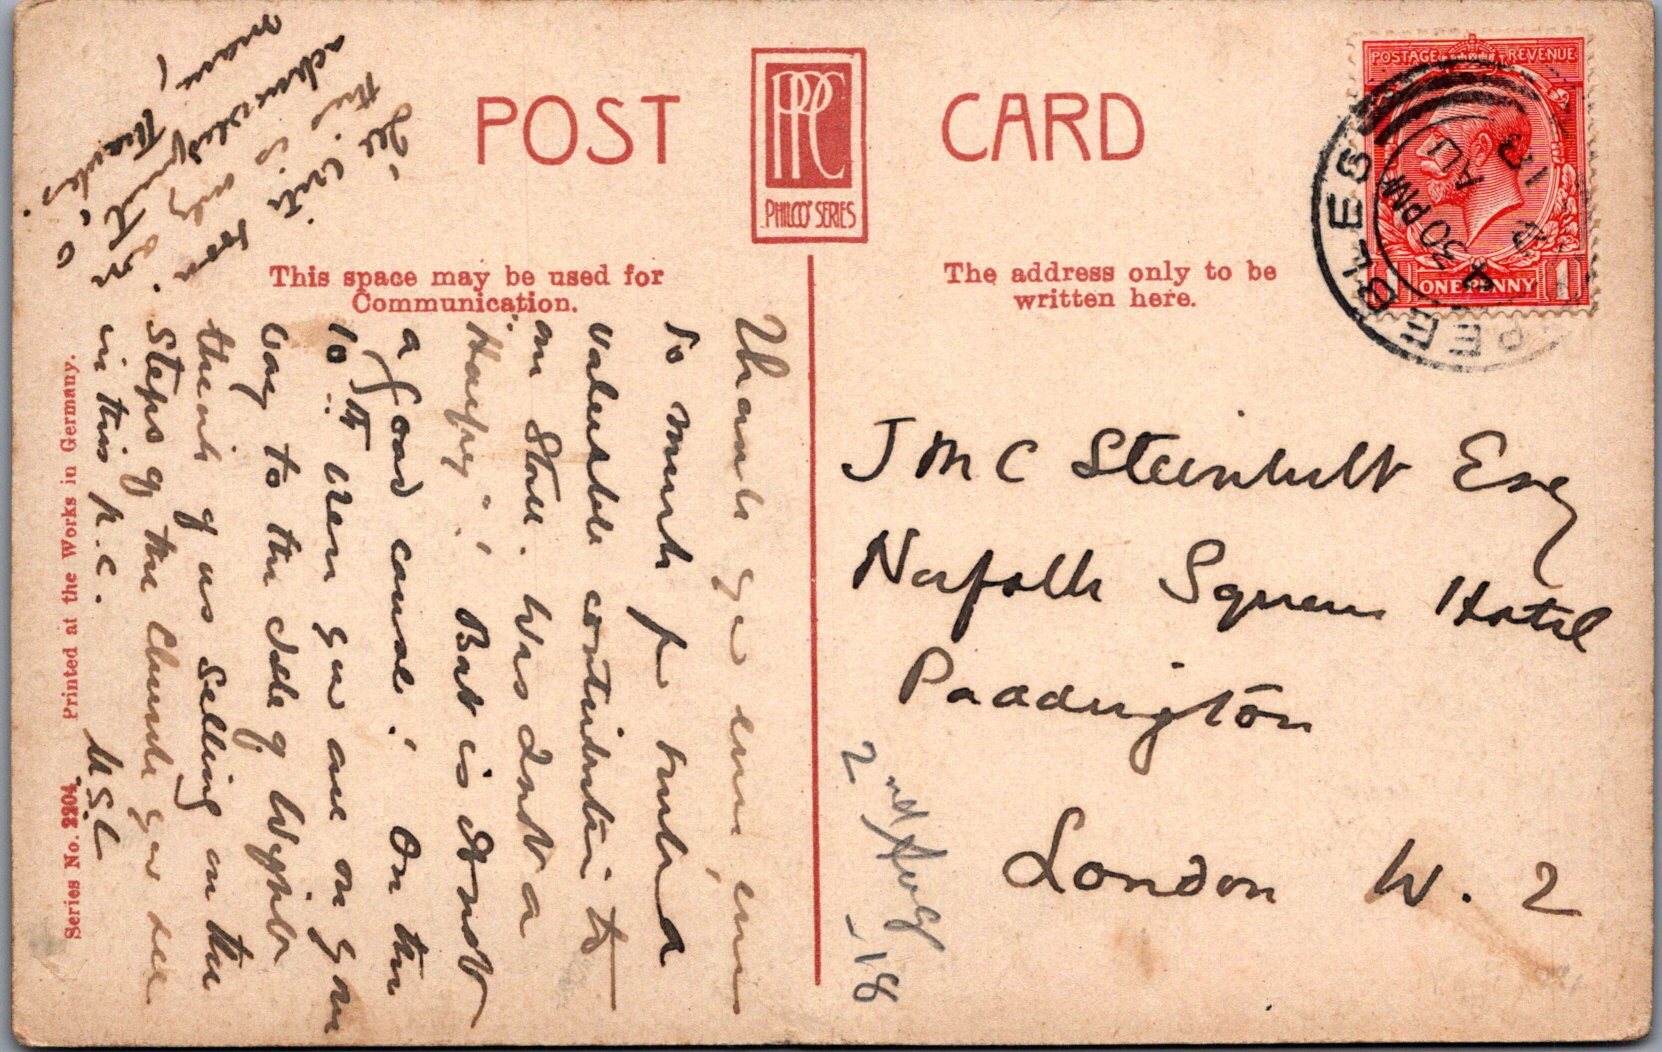 POST CARD
PPC
PHILCO SERIES
This space may be used for
Communication.
The address only to be
written here.
POSTAGE REVENUE
ONE PENNY
PEEBLES
4 30 PM
2 AU
18
J M C Esq
Norfolk Square Hotel
Paddington
London W. 2
2nd Aug
-18
Thank you ever, ever
so much for such a
valuable contribution to
our Stall. Was I not a
"Harpy"! But is it not
a good cause! On the
10th when you are on your
way to the side of
think of us selling on the
Steps of the Church you see
in this p.c.
Series No. 2204. Printed at the Works in Germany.